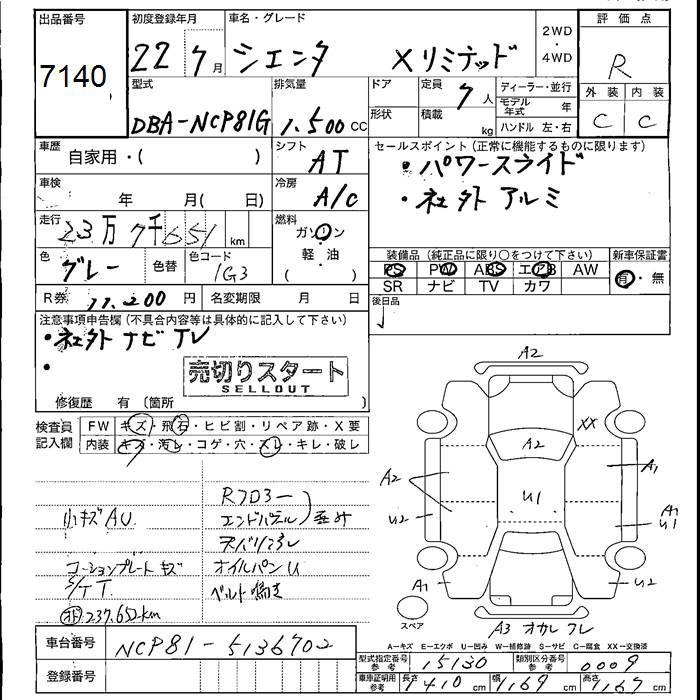 出品番号
7140
初度登録年月
22 7月
車名・グレード
シエンタ Xリミテッド
2WD
・
4WD
評価点
R
外装 内装
C C
型式
DBA-NCP81G
排気量
1.500 CC
ドア
形状
定員 7人
積載 kg
ディーラー・並行
モデル年式 年
ハンドル 左・右
車歴 自家用・( )
シフト AT
セールスポイント(正常に機能するものに限ります)
・パワースライド
・社外アルミ
車検 年 月( 日)
冷房 A/C
走行 23万7千651km
燃料 ガソリン
軽・油
( )
色 グレー 色替
色コード 1G3
装備品(純正品に限り○をつけて下さい) 新車保証書
PS PW ABS エアB AW 有・無
SR ナビ TV カワ
R券 11.200円 名変期限 月 日
後日品
注意事項申告欄(不具合内容等は具体的に記入して下さい)
・社外ナビTV
・
売切りスタート
SELLOUT
修復歴 有(箇所 )
検査員記入欄
FW キズ・飛石・ヒビ割・リペア跡・X要
内装 キズ・汚レ・コゲ・穴・スレ・キレ・破レ
Rフロアー
小キズAU エンドパネル 歪み
コーションプレートキズ オイルパンU
ベルト鳴き
237,652km
A2
XX
A2
A2 U1 A1
U2 A1
U1
A1 U2
スペア
A3 オカレ フレ
A-キズ E-エクボ U-凹み W-補修跡 S-サビ C-腐食 XX-交換済
車台番号 NCP81-5136702
登録番号
型式指定番号参考 15130 類別区分番号参考 0009
車庫証明用参考 長さ 410cm 幅 169cm 高さ 167cm